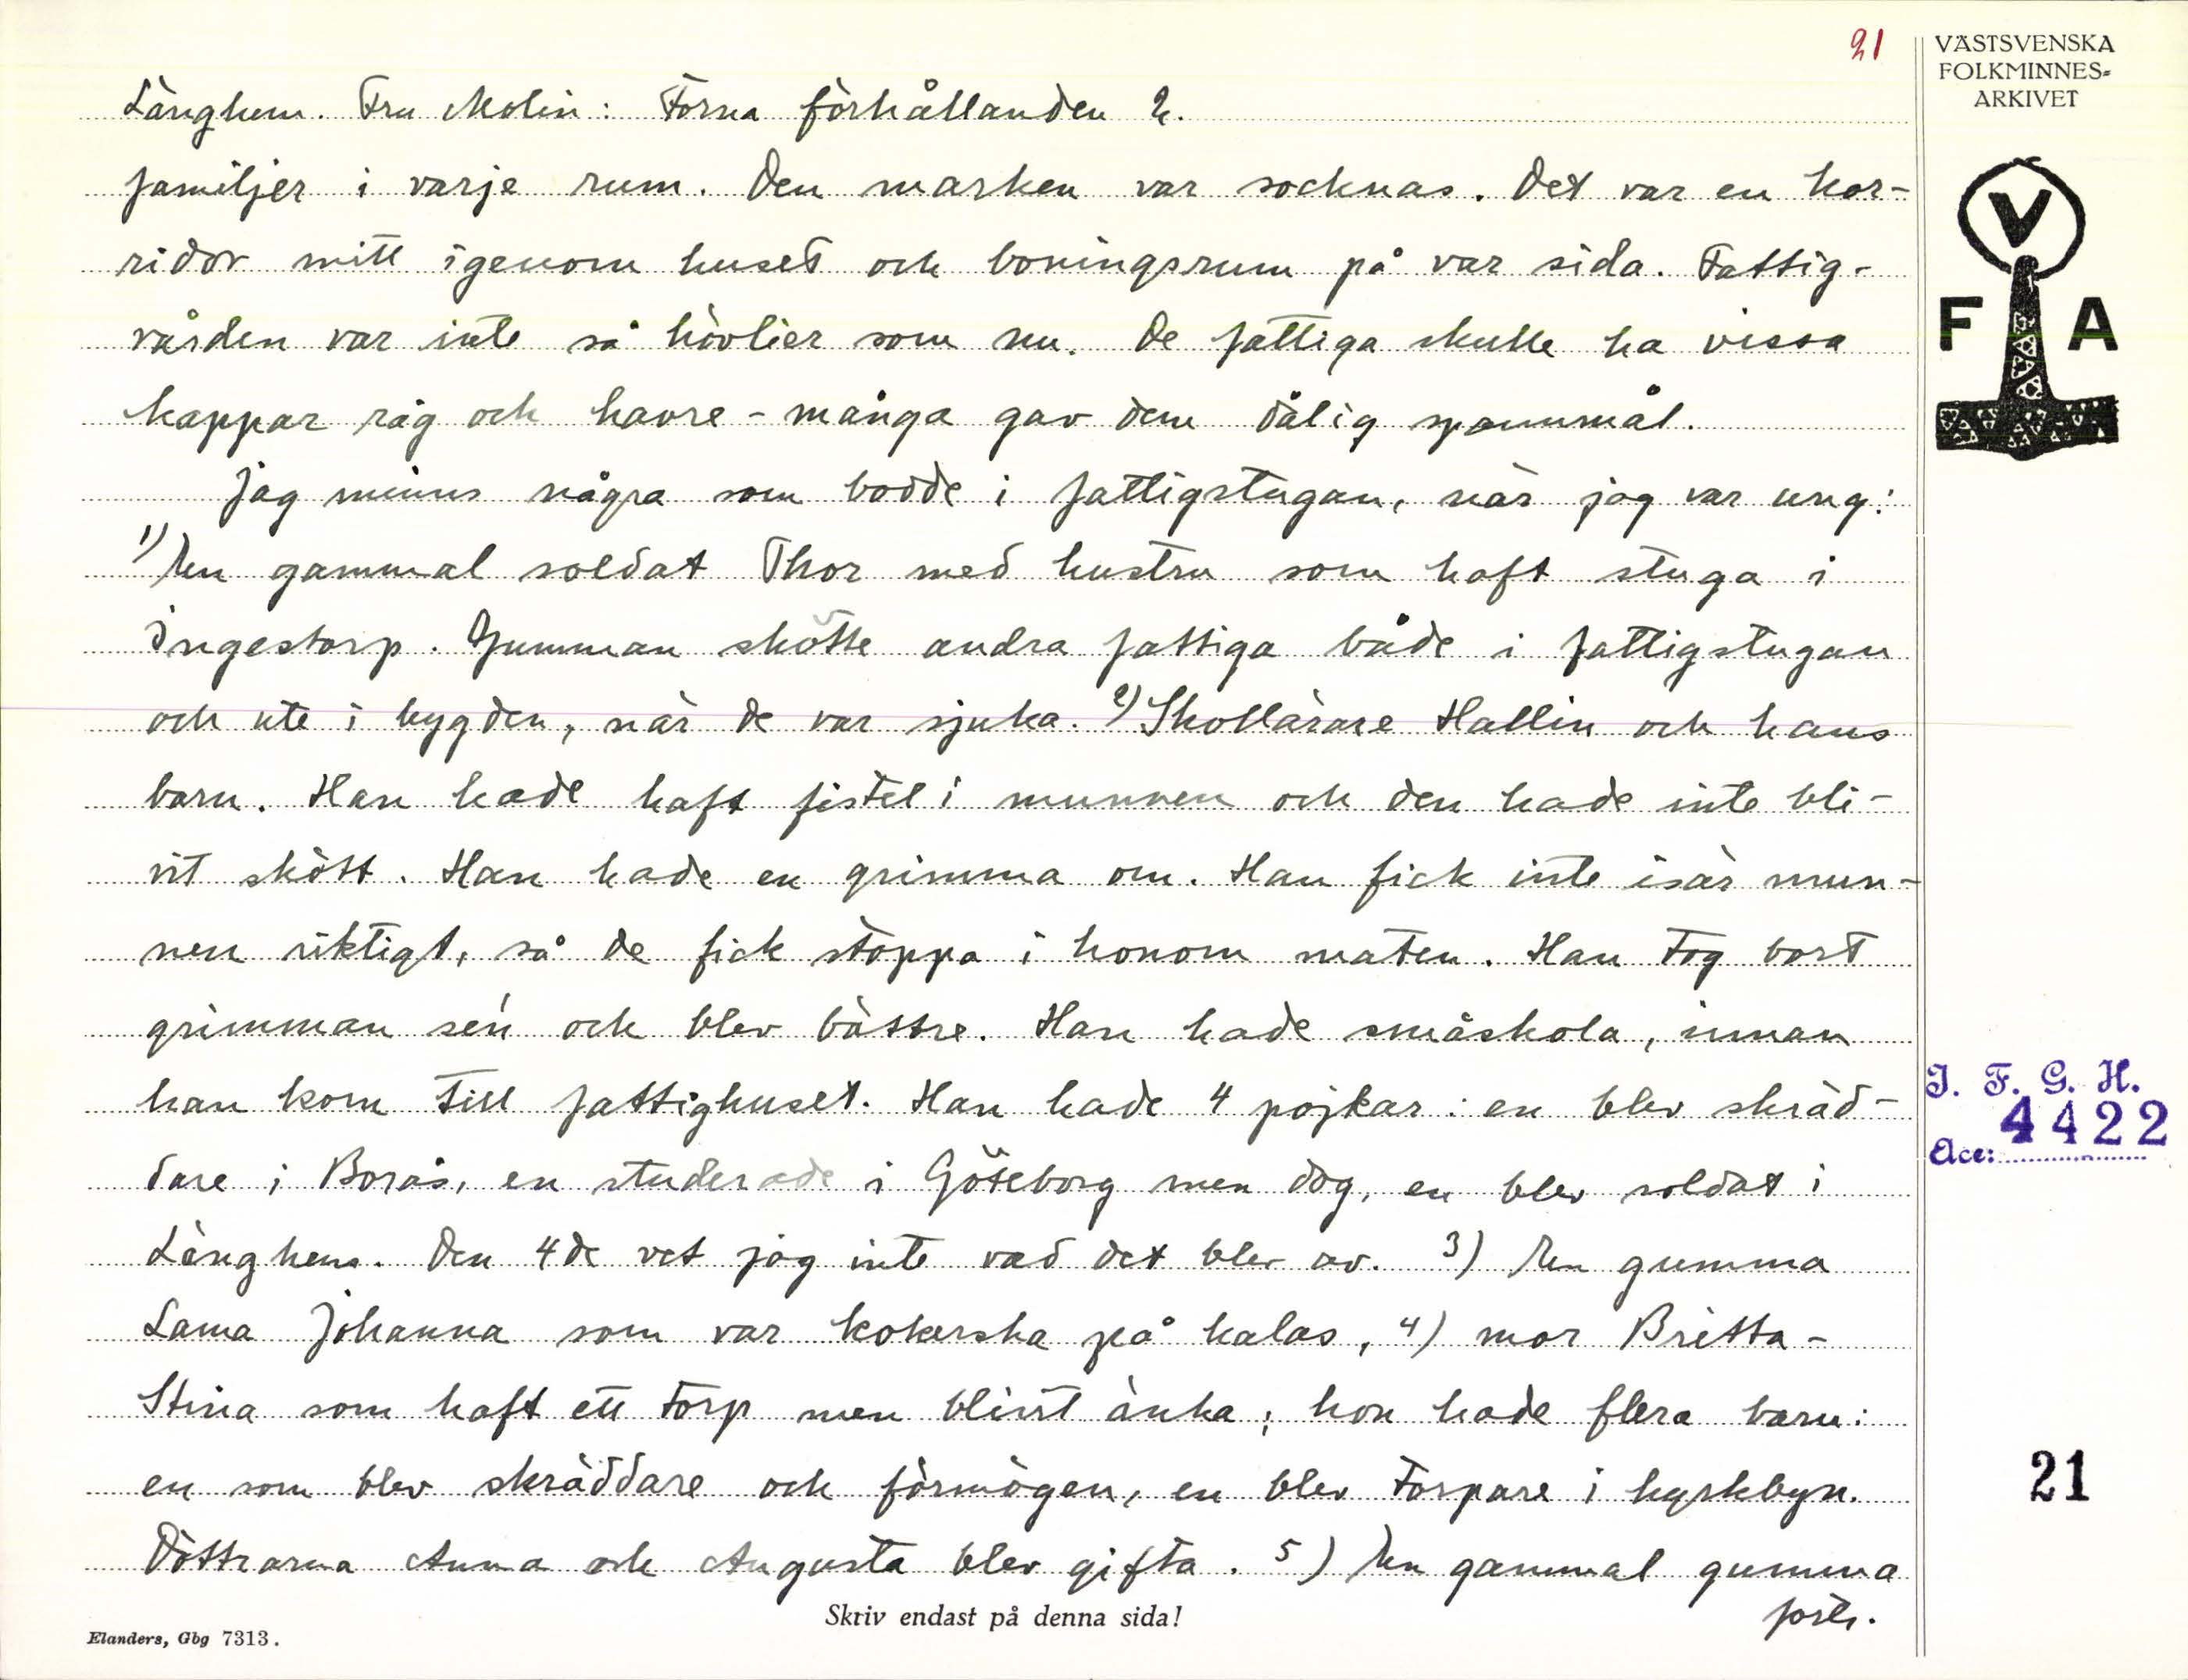 21
VÄSTSVENSKA
FOLKMINNES-
ARKIVET
Länghem. Fru Molin: Forna förhållanden 2.
familjer i varje rum. Den marken var socknas. Det var en kor-
ridor mitt igenom huset och boningsrum på var sida. Fattig-
vården var inte så hövlier som nu. De fattiga skulle ha vissa
kappar råg och havre - många gav dem dålig spannmål.
Jag minns några som bodde i fattigstugan, när jag var ung:
1) En gammal soldat Thor med hustru som haft stuga i
Ingestorp. Gumman skötte andra fattiga både i fattigstugan
och ute i bygden, när de var sjuka. 2) Skollärare Hallin och hans
barn. Han hade haft fistel i munnen och den hade inte bli-
vit skött. Han hade en grimma om. Han fick inte isär mun-
nen riktigt, så de fick stoppa i honom maten. Han tog bort
grimman sén och blev bättre. Han hade småskola, innan
han kom till fattighuset. Han hade 4 pojkar: en blev skräd-
dare i Borås, en studerade i Göteborg men dog, en blev soldat i
Länghem. Den 4de vet jag inte vad det blev av. 3) En gumma
Lama Johanna som var kokerska på kalas, 4) mor Britta-
Stina som haft ett torp men blivit änka; hon hade flera barn:
en som blev skräddare och förmögen, en blev torpare i kyrkbyn.
Döttrarna Anna och Augusta blev gifta. 5) En gammal gumma
forts.
Skriv endast på denna sida!
Elanders, Gbg 7313.
V
F A
I. F. G. H.
4422
Acc:
21